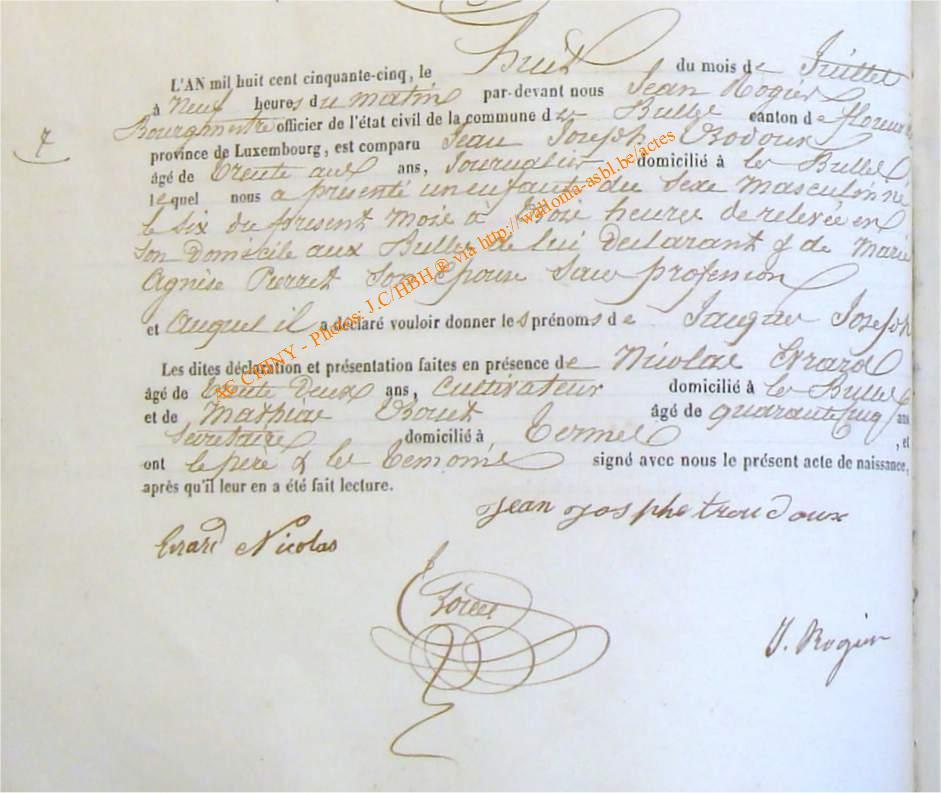 L'AN mil huit cent cinquante-cinq, le huit du mois de Juillet
à Neuf heures du matin par-devant nous Jean Rogier
Bourgmestre officier de l'état civil de la commune des Bulles canton de florenville
7
province de Luxembourg, est comparu Jean Joseph
âgé de trente ans, Journalier domicilié à les Bulles
lequel nous a présenté un enfant du Sexe masculin né
le Six du présent mois à trois heures de relevée en
Son Domicile aux Bulles de lui déclarant & de Marie
Agnèse Pierret Son épouse Sans profession
et auquel il a déclaré vouloir donner les prénoms de Joseph
Les dites déclaration et présentation faites en présence de Nicolas Errard
âgé de trente Deux ans, Cultivateur domicilié à les Bulles
et de Mathias âgé de quarante Cinq ans
Secretaire domicilié à Termes , et
ont le père & les temoins signé avec nous le présent acte de naissance,
après qu'il leur en a été fait lecture.
jean josphe troudoux
Errard Nicolas
J. Rogier
AC CHINY - Photos: J.C/HBH ® via http://wallonia-asbl.be/actes